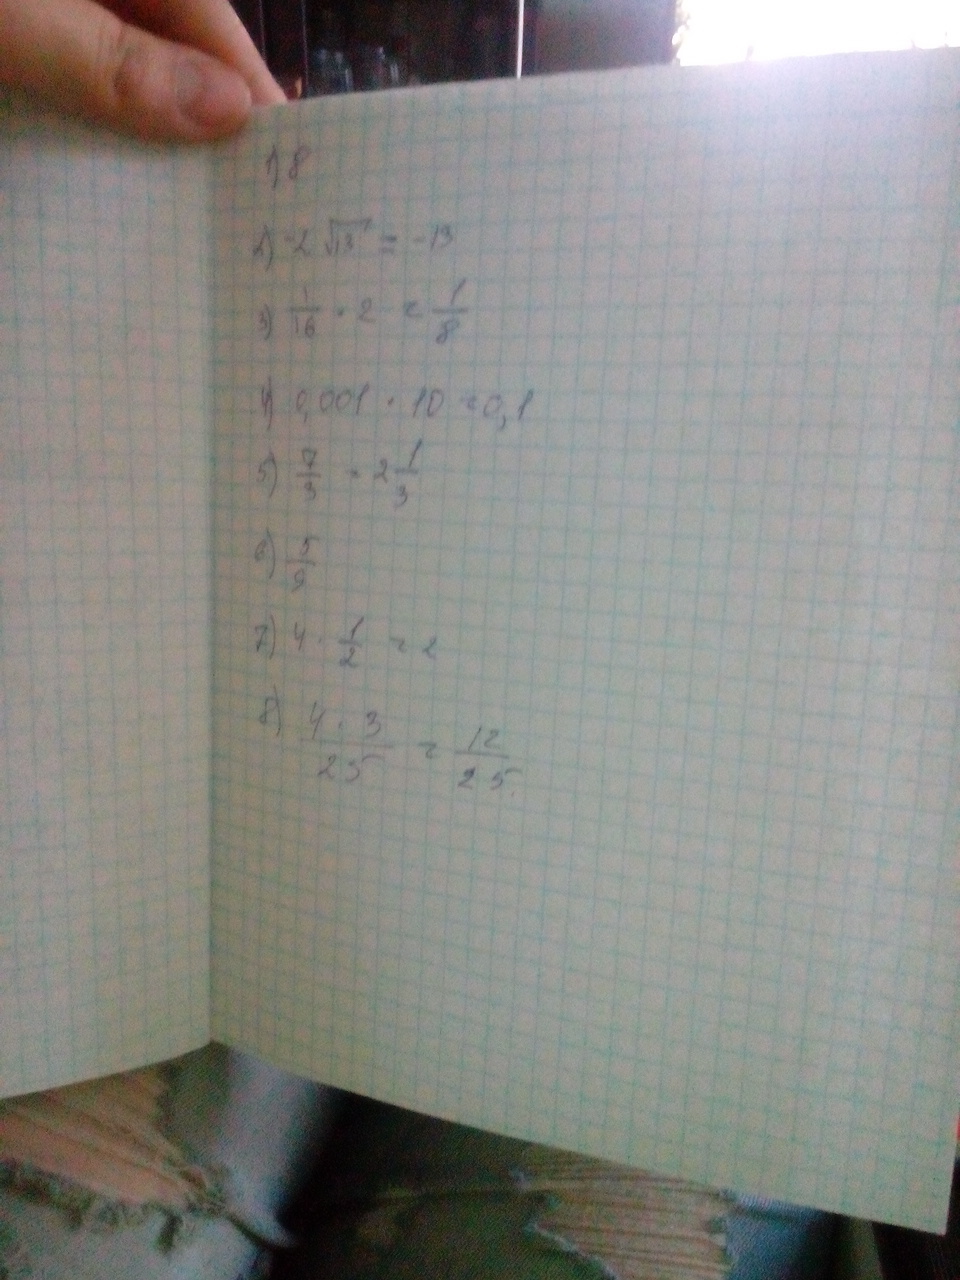 1) 8
2) -2 √13 = -13
3) 1/16 · 2 = 1/8
4) 0,001 · 10 = 0,1
5) 7/3 = 2 1/3
6) 5/9
7) 4 · 1/2 = 2
8) 4 · 3/25 = 12/25